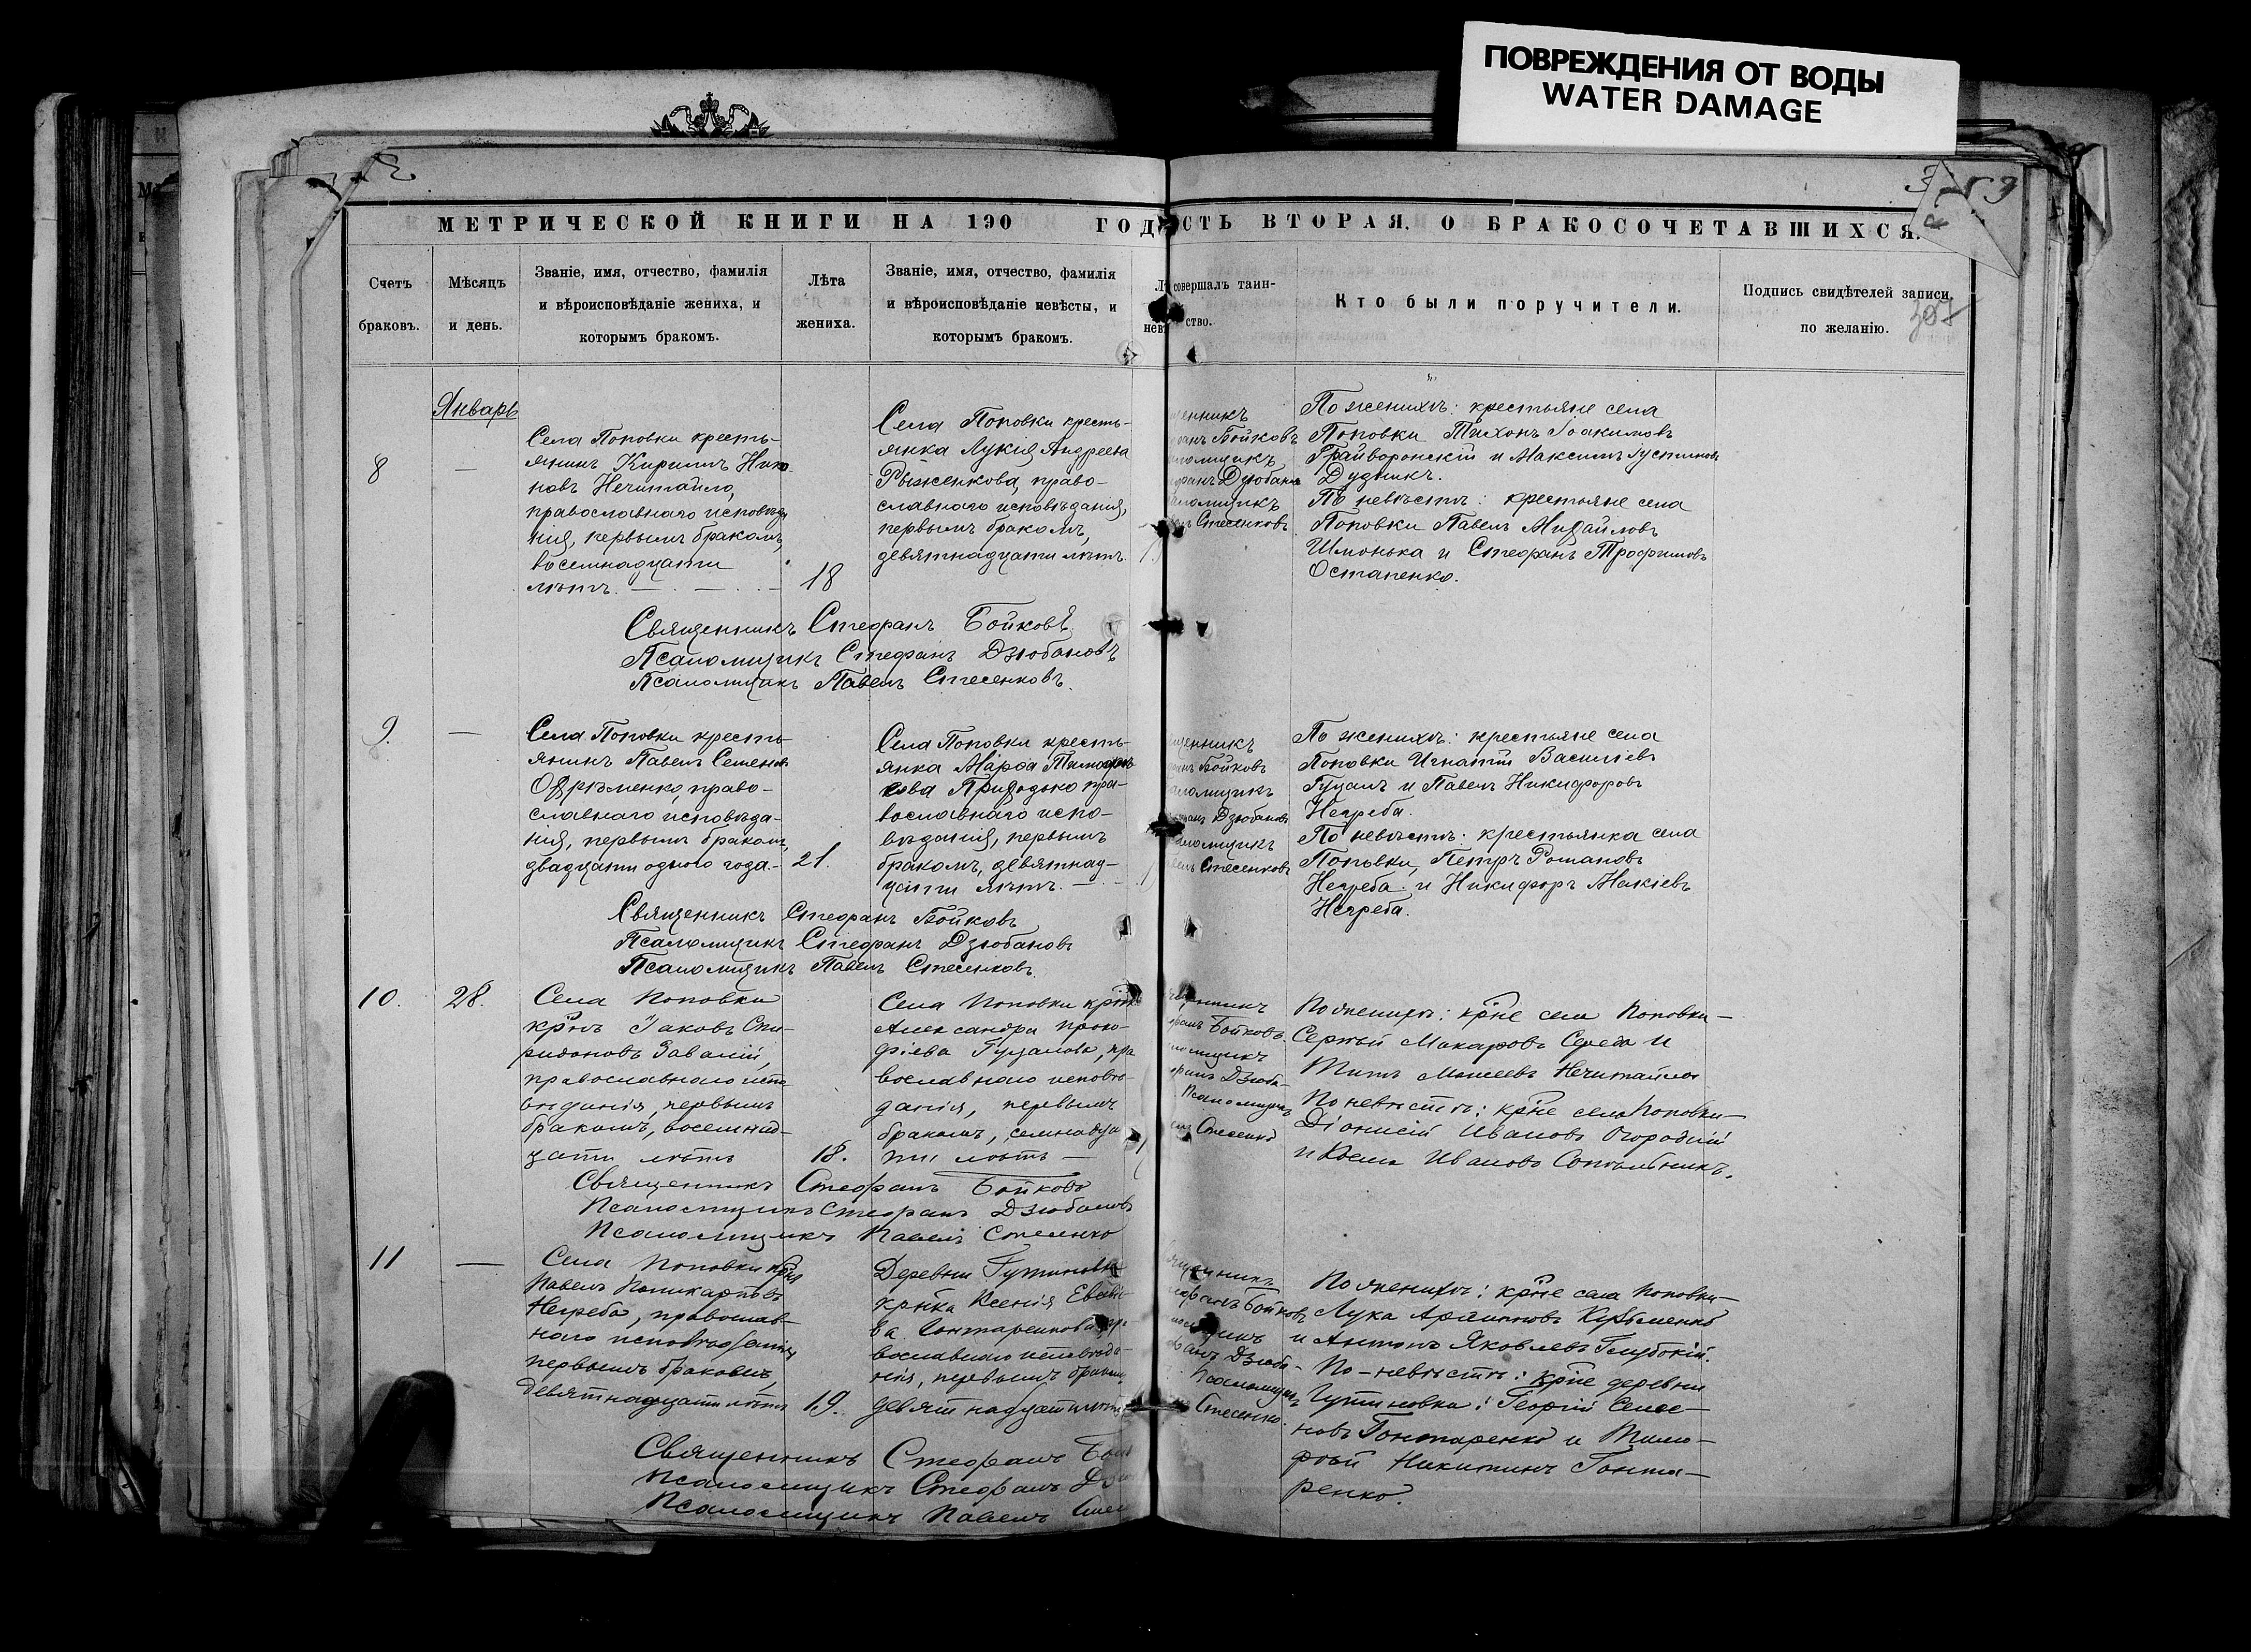 ПОВРЕЖДЕНИЯ ОТ ВОДЫ
WATER DAMAGE
МЕТРИЧЕСКОЙ КНИГИ НА 190 ГОД
СТЬ ВТОРАЯ. О БРАКОСОЧЕТАВШИХСЯ.
Счетъ
браковъ.
Мѣсяцъ
и день.
Званіе, имя, отчество, фамилія
и вѣроисповѣданіе жениха, и
которымъ бракомъ.
Лѣта
жениха.
Званіе, имя, отчество, фамилія
и вѣроисповѣданіе невѣсты, и
которымъ бракомъ.
совершалъ таин-
ство.
Кто были поручители.
Подпись свидѣтелей записи
по желанію.
307
Январь
8
—
Села Поповки кресть-
янинъ Кириллъ Нико-
новъ Нечитайло,
православнаго исповѣда
нія, первымъ бракомъ,
восемнадцати
лѣтъ. —
18
Села Поповки кресть-
янка Лукія Андреева
Рыженкова, право-
славнаго исповѣданія,
первымъ бракомъ,
девятнадцати лѣтъ.
Бойковъ
Дзюбановъ
Стесенковъ
По женихѣ: крестьяне села
Поповки Тихонъ Іоакимовъ
Грайворонскій и Максимъ Іустиновъ
Дудникъ.
По невѣстѣ: крестьяне села
Поповки Павелъ Михайловъ
Шмонька и Стефанъ Трофимовъ
Остапенко.
Священникъ Стефанъ Бойковъ
Псаломщикъ Стефанъ Дзюбановъ
Псаломщикъ Павелъ Стесенковъ.
9.
—
Села Поповки кресть-
янинъ Павелъ Семеновъ
Охрѣменко, право-
славнаго исповѣда-
нія, первымъ бракомъ,
двадцати одного года.-
21.
Села Поповки кресть-
янка Марѳа Тимоѳее-
ева Приходько пра-
вославнаго испо-
вѣданія, первымъ
бракомъ, девятнад-
цати лѣтъ. —
Бойковъ
Дзюбановъ
Стесенковъ
По женихѣ: крестьяне села
Поповки Игнатій Василіевъ
Гуцалъ и Павелъ Никифоровъ
Негреба.
По невѣстѣ: крестьянка села
Поповки, Петръ Романовъ
Негреба и Никифоръ Макіевъ
Негреба.
Священникъ Стефанъ Бойковъ
Псаломщикъ Стефанъ Дзюбановъ
Псаломщикъ Павелъ Стесенковъ.
10.
28.
Села Поповки
кр-нъ Іаковъ Спи-
ридоновъ Завалій,
православнаго испо
вѣданія, первымъ
бракомъ, восемнад-
цати лѣтъ
18.
Села Поповки
Александра Проко-
фіева Гуцалова, пра
вославнаго исповѣ-
данія, первымъ
бракомъ, семнадца
ти лѣтъ —
Бойковъ
Дзюба-
Псаломщикъ
Стесенко
По женихѣ: кр-не села Поповки—
Сергѣй Макаровъ Середа и
Титъ Моисеевъ Нечитайло
По невѣстѣ: кр-не села Поповки—
Діонисій Ивановъ Огородній
и Косма Ивановъ
Священникъ Стефанъ Бойковъ
Псаломщикъ Стефанъ Дзюбановъ
Псаломщикъ Павелъ Стесенко
11
—
Села Поповки
Павелъ Поликарповъ
Негреба, православ-
наго исповѣданія
первымъ бракомъ,
девятнадцати лѣтъ
19.
Деревни Гутиновки
кр-нка Ксенія
ва Гонтаренкова,
вославнаго исповѣда-
нія, первымъ бракомъ
девятнадцати лѣтъ
Бойковъ
Дзюба-
Псаломщикъ
Стесенко.
По женихѣ: кр-не села Поповки—
Лука
и Антонъ Яковлевъ Глубокій.
По-невѣстѣ: кр-не деревни
Гутиновки: Георгій Семе-
новъ Гонтаренко и Тимо-
фей Никитинъ Гонта-
ренко.
Священникъ Стефанъ
Псаломщикъ Стефанъ
Псаломщикъ Павелъ